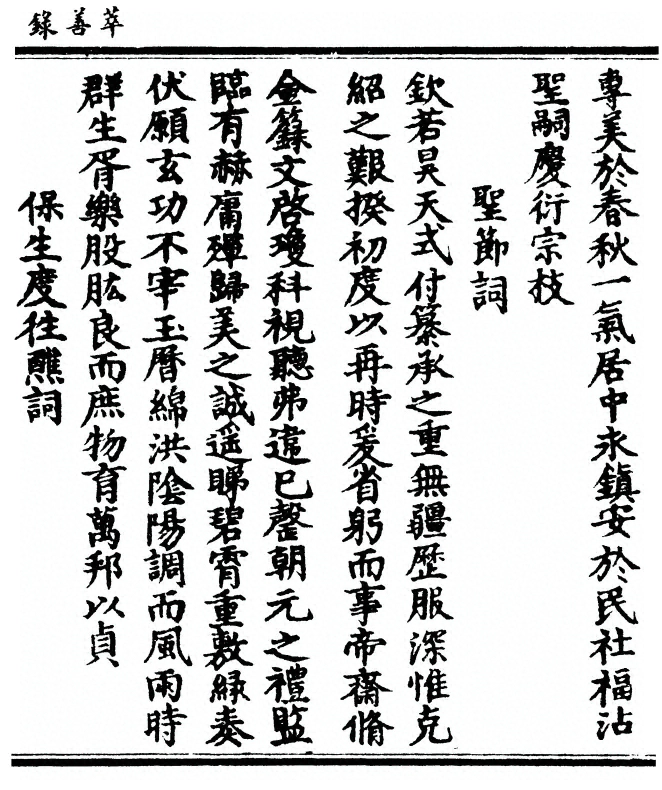 萃善錄
專美於春秋一氣居中永鎮安於民社福沾
聖嗣慶衍宗枝
聖節詞
欽若昊天式付纂承之重無疆歷服深惟克
紹之艱揆初度以再時爰省躬而事帝齋脩
金籙文啓瓊科視聽弗違已罄朝元之禮監
臨有赫庸殫歸美之誠遥睇碧霄重敷綠奏
伏願玄功不宰玉曆綿洪陰陽調而風雨時
群生胥樂股肱良而庶物育萬邦以貞
保生度往醮詞